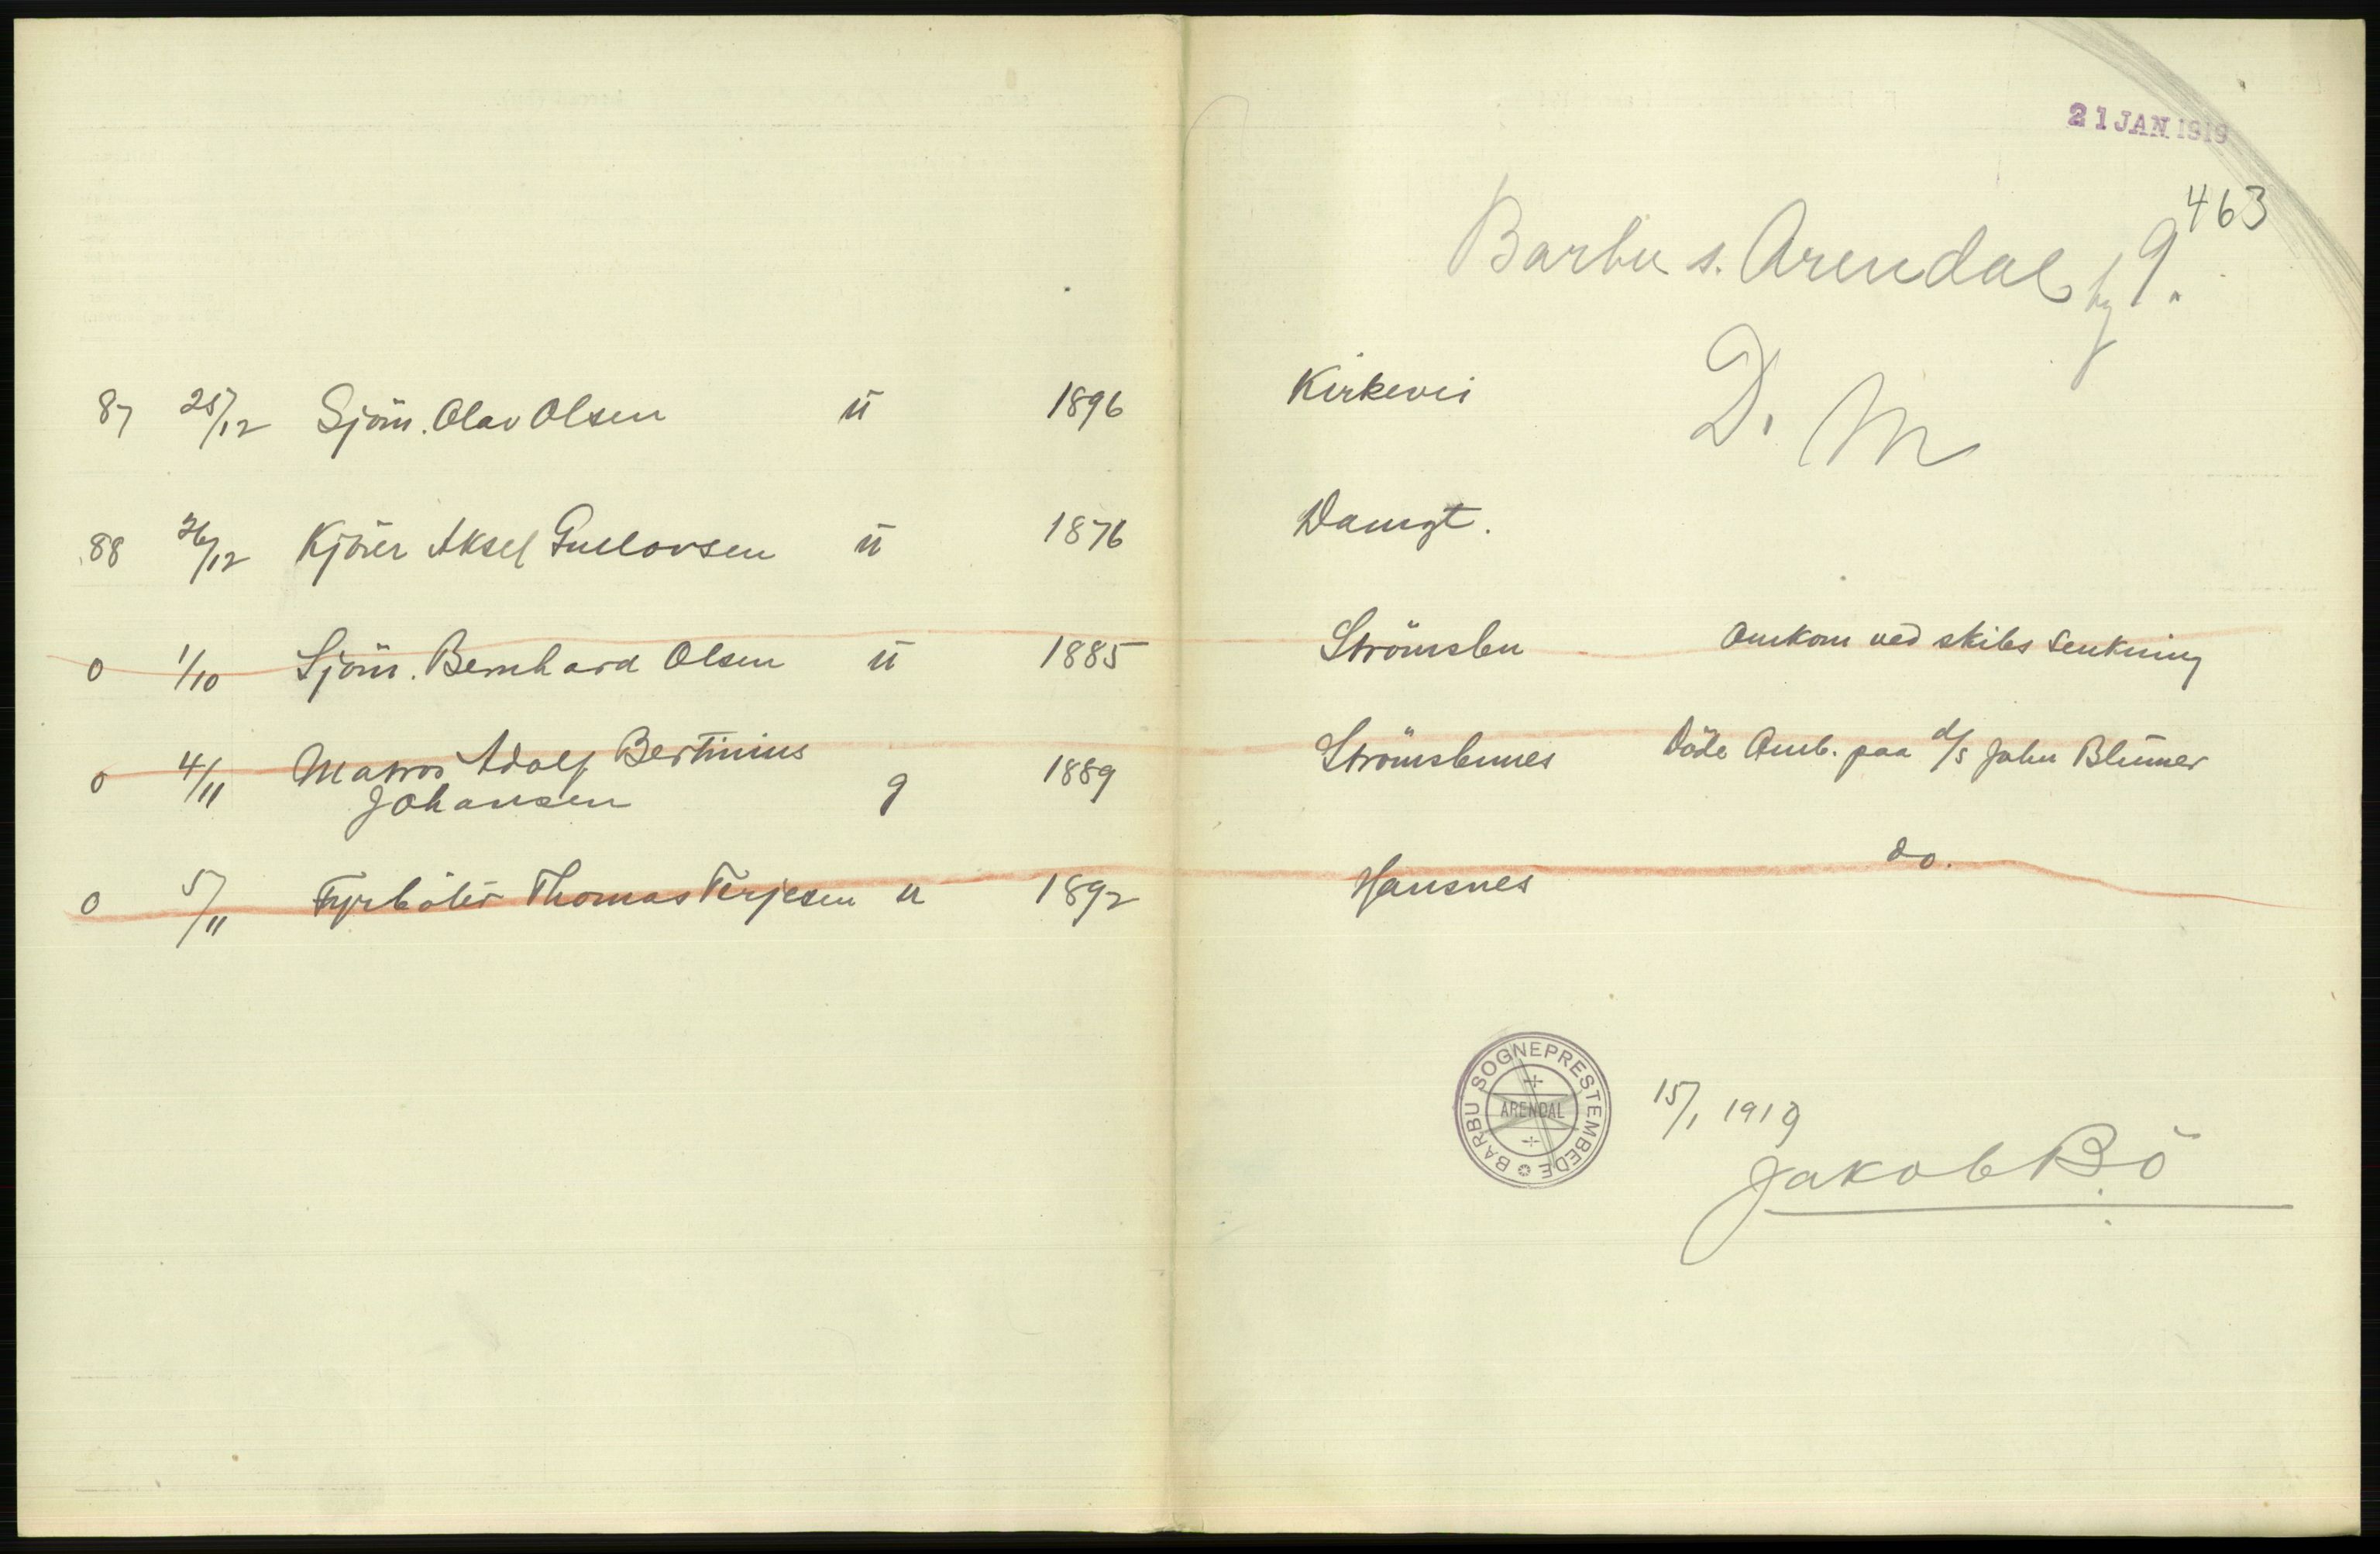 21 JAN 1919
463
Barbu s. Arendal by 9.
D. M
87 25/12 Sjöm. Olav Olsen ū 1896 Kirkevei
88 26/12 Kjörer Aksel Gullovsen ū 1876 Damgt.
0 1/10 Sjöm. Bernhard Olsen ū 1885 Strömsbu Omkom ved skibs senkning
0 4/11 Matros Adolf Bertinius
Johansen g 1889 Strömsbunes Döde Omb. paa d/s John Blumer
0 5/11 Fyrböter Thomas Terjesen u 1892 Hansnes do.
BARBU SOGNEPRESTEMBEDE
ARENDAL
15/1 1919
Jakob Bö